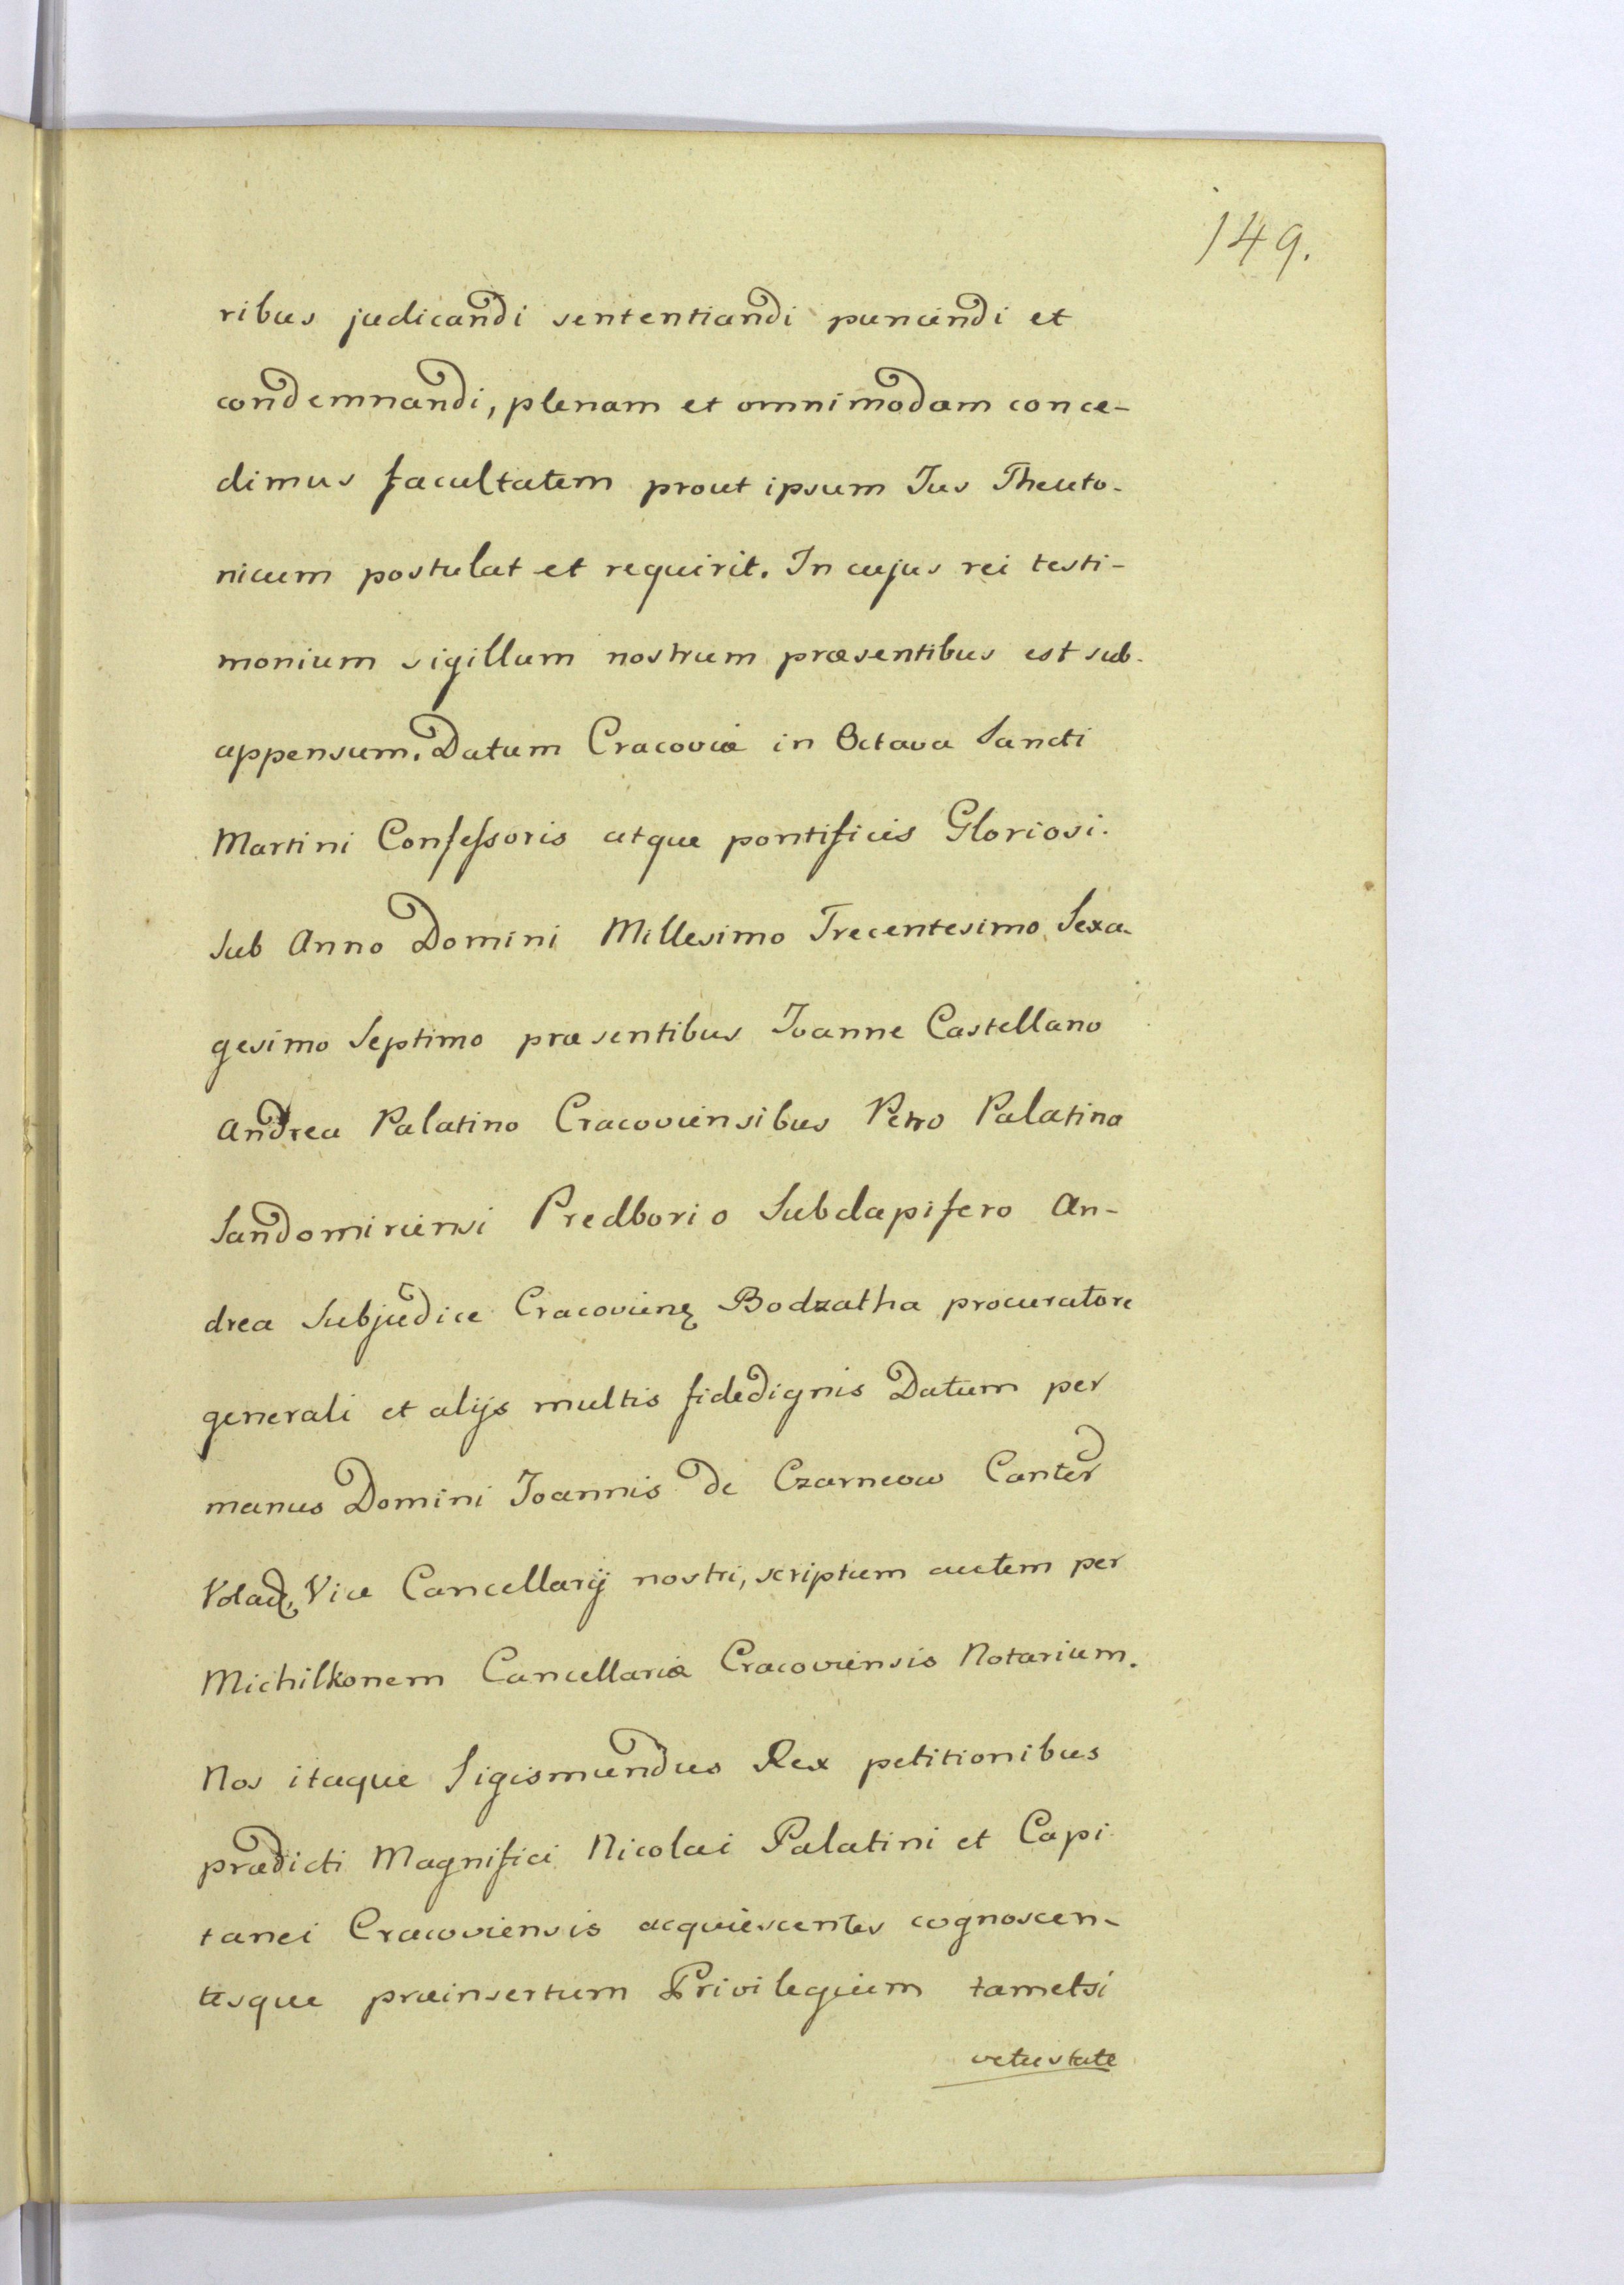 149.
ribus judicandi sententiandi puniendi et
condemnandi, plenam et omnimodam conce-
dimus facultatem prout ipsum Jus Theuto-
nicum postulat et requirit. In cujus rei testi-
monium sigillum nostrum præsentibus est sub-
appensum. Datum Cracoviæ in Octava Sancti
Martini Confessoris atque pontificis Gloriosi.
Sub Anno Domini Millesimo Trecentesimo Sexa-
gesimo Septimo præsentibus Joanne Castellano
Andrea Palatino Cracoviensibus Petro Palatino
Sandomiriensi Predborio Subdapifero An-
drea Subjudice Cracovienę Bodzatha procuratore
generali et alijs multis fidedignis Datum per
manus Domini Joannis de Czarncow Canter
Vlad, Vice Cancellarij nostri, scriptum autem per
Michilkonem Cancellariæ Cracoviensis Notarium.
Nos itaque Sigismundus Rex petitionibus
prædicti Magnifici Nicolai Palatini et Capi-
tanei Cracoviensis acquiescentes cognoscen-
tesque præinsertum Privilegium tametsi
vetustate